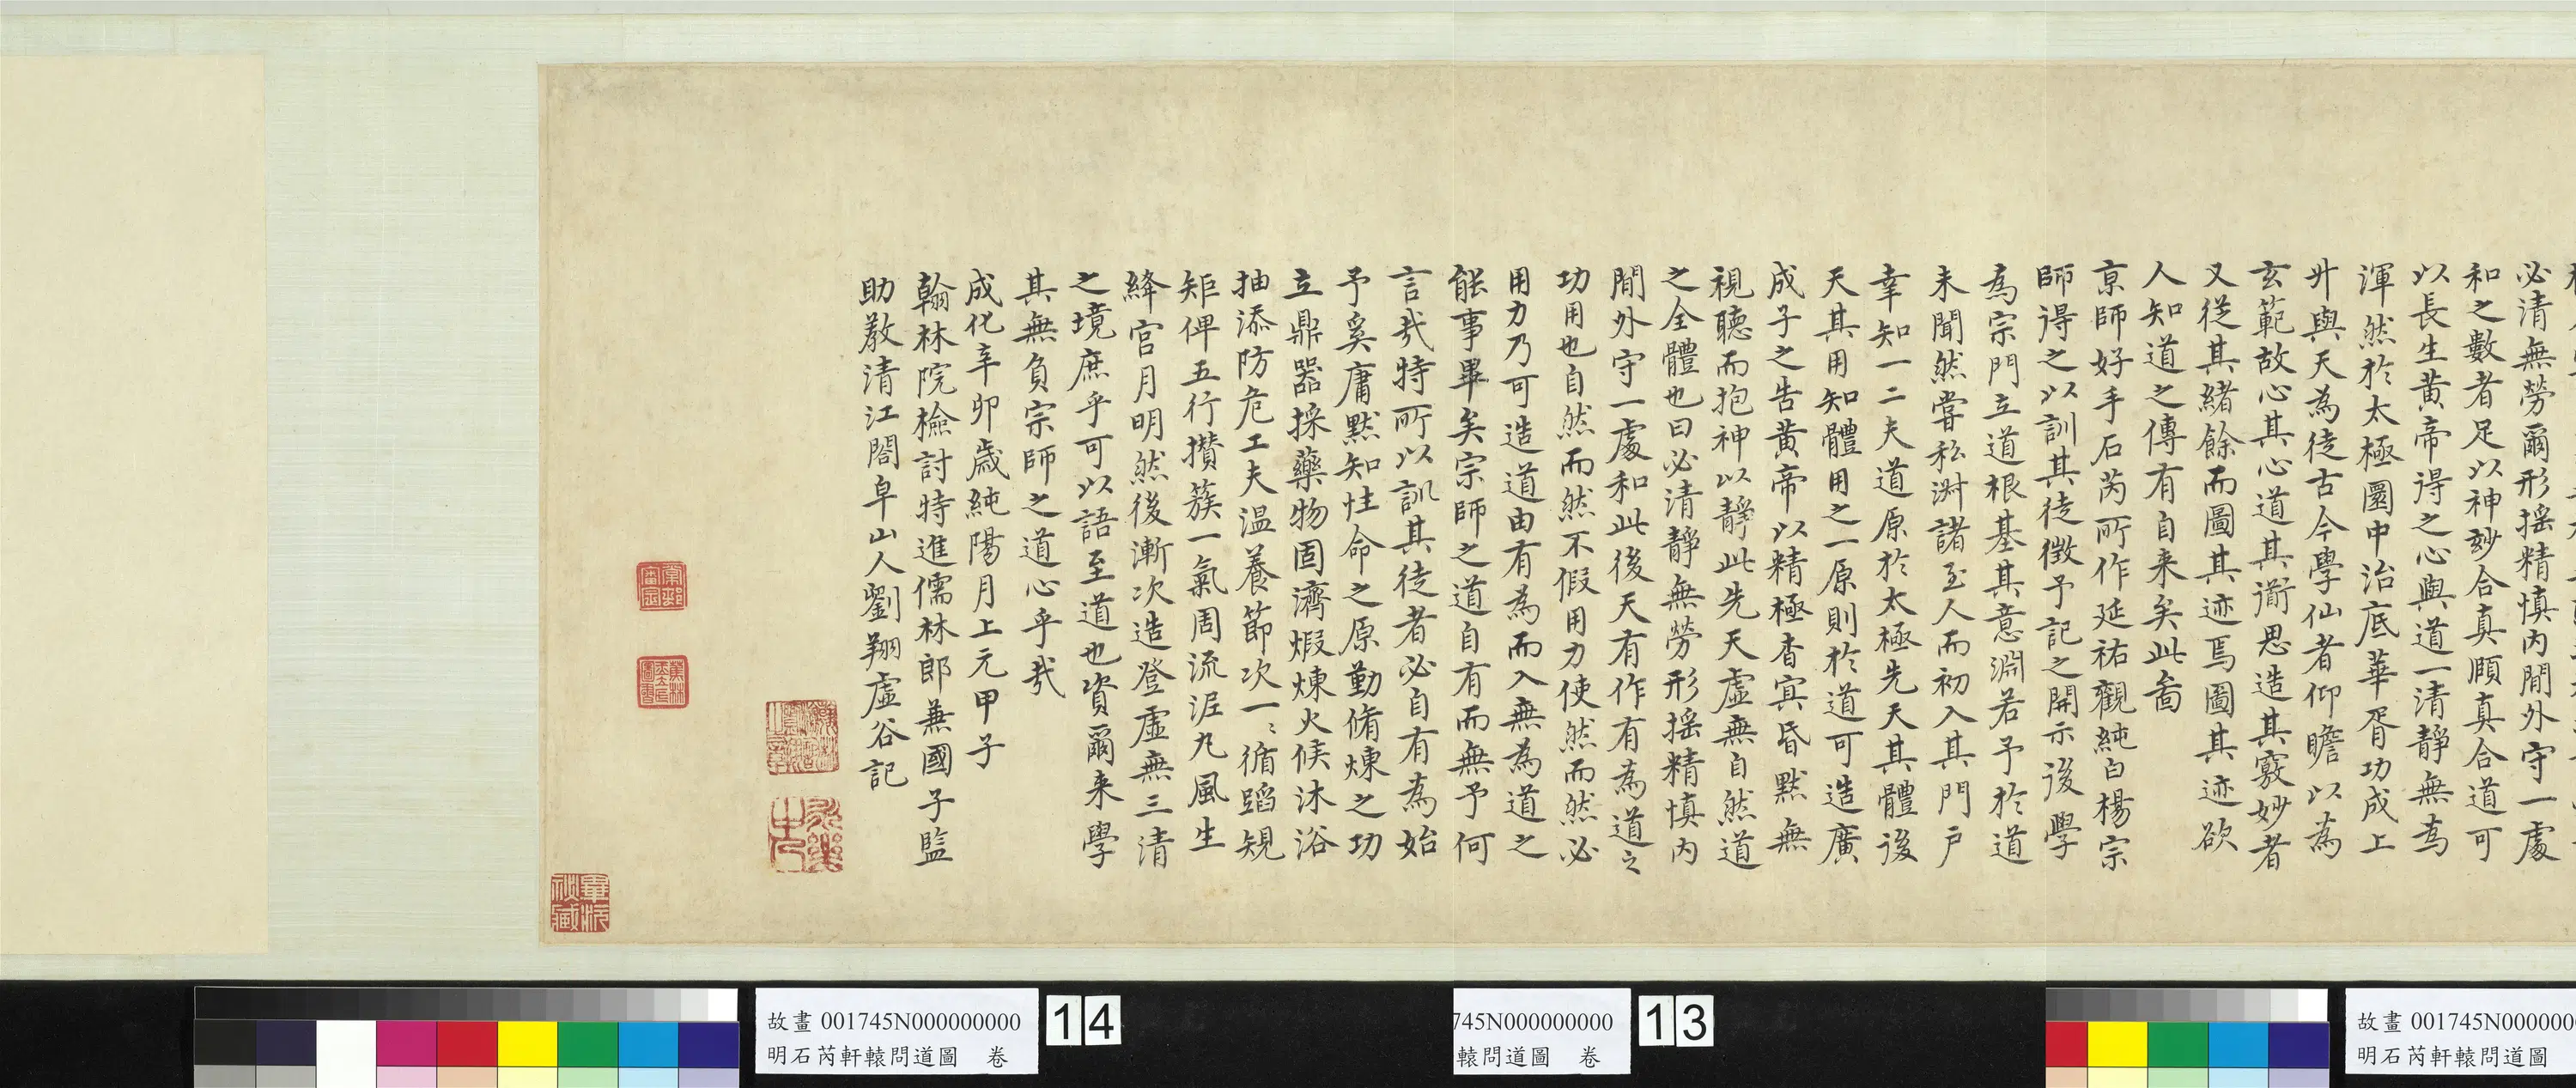 必清無勞爾形搖精慎内閒外守一處
和之數者足以神玅合真頋真合道可
以長生黄帝得之心與道一清靜無為
渾然於太極圈中治底華胥功成上
升與天為徒古今學仙者仰瞻以為
玄範故心其心道其衜思造其竅妙者
又從其緒餘而圖其迹焉圖其迹欲
人知道之傳有自来矣此啚
亰師好手石芮所作延祐觀純白楊宗
師得之以訓其徒徴予記之開示後學
為宗門立道根基其意淵若予於道
未聞然嘗私淑諸至人而初入其門户
幸知一二夫道原於太極先天其體後
天其用知體用之一原則於道可造廣
成子之告黄帝以精極杳㝠昏黙無
視聽而抱神以靜此先天虛無自然道
之全體也曰必清靜無勞形搖精慎内
閒外守一處和此後天有作有為道之
功用也自然而然不假用力使然而然必
用力乃可造道由有為而入無為道之
能事畢矣宗師之道自有而無予何
言㢤特所以訓其徒者必自有為始
予奚庸黙知性命之原勤脩煉之功
立鼎器採藥物固濟煆煉火候沐浴
抽添防危工夫温養節次一ヽ循蹈䂓
矩俾五行攢簇一氣周流泥九風生
絳宮月明然後漸次造登虛無三清
之境庶乎可以語至道也資爾来學
其無負宗師之道心乎㢤
成化辛卯歲純陽月上元甲子
翰林院檢討特進儒林郎兼國子監
助教清江閤皁山人劉翔虛谷記
畢沅祕藏
故畫 001745N000000000
明石芮軒轅問道圖 卷
14
745N000000000
轅問道圖 卷
13
故畫 001745N000000
明石芮軒轅問道圖